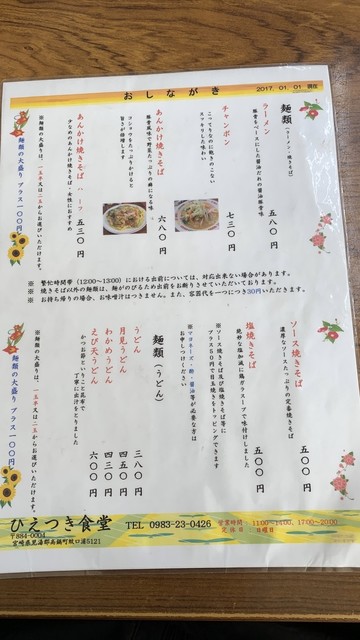 おしながき
2017.01.01 現在
麺類（ラーメン・焼きそば）
ラーメン 五八〇円
豚骨をベースにした醤油だれの醤油豚骨味
チャンポン 七三〇円
こってりなのに飽きのこない
スッキリした味わい
あんかけ焼きそば 六八〇円
豚骨風味で野菜たっぷりの癖になる味
コショウをたっぷりかけると
旨さが倍増します
あんかけ焼きそば ハーフ 五三〇円
少なめのあんかけ焼きそば・女性におすすめ
麺類の大盛り プラス一〇〇円
※ 繁忙時間帯（12:00～13:00）における出前については、対応出来ない場合があります。
※ 焼きそば以外の麺類は、麺がのびるため出前をお断りさせていただいております。
※ お持ち帰りの場合、お味噌汁はつきません。また、容器代を一つにつき30円いただきます。
ソース焼きそば 五〇〇円
濃厚なソースたっぷりの定番焼きそば
塩焼きそば 五〇〇円
絶妙な塩加減に鶏ガラスープで味付けしました
※ソース焼きそば及び塩焼きそば等に
プラス５０円で目玉焼きをトッピングできます
※マヨネーズ・酢・醤油等が必要な方は
お申しつけください
麺類（うどん）
うどん 三八〇円
月見うどん 四五〇円
わかめうどん 四三〇円
えび天うどん 六〇〇円
かつお節といりこと昆布で
丁寧に出汁をとりました
麺類の大盛り プラス一〇〇円
ひえつき食堂
TEL 0983-23-0426
営業時間 11:00～14:00、17:00～20:00
定休日 日曜日
〒884-0004
宮崎県児湯郡高鍋町蚊口浦5121